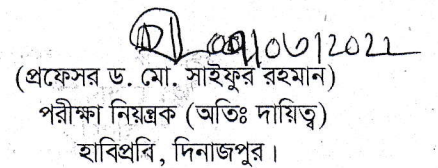 ০৯/০৩/2022
(প্রফেসর ড. মো. সাইফুর রহমান)
পরীক্ষা নিয়ন্ত্রক (অতিঃ দায়িত্ব)
হাবিপ্রবি, দিনাজপুর।